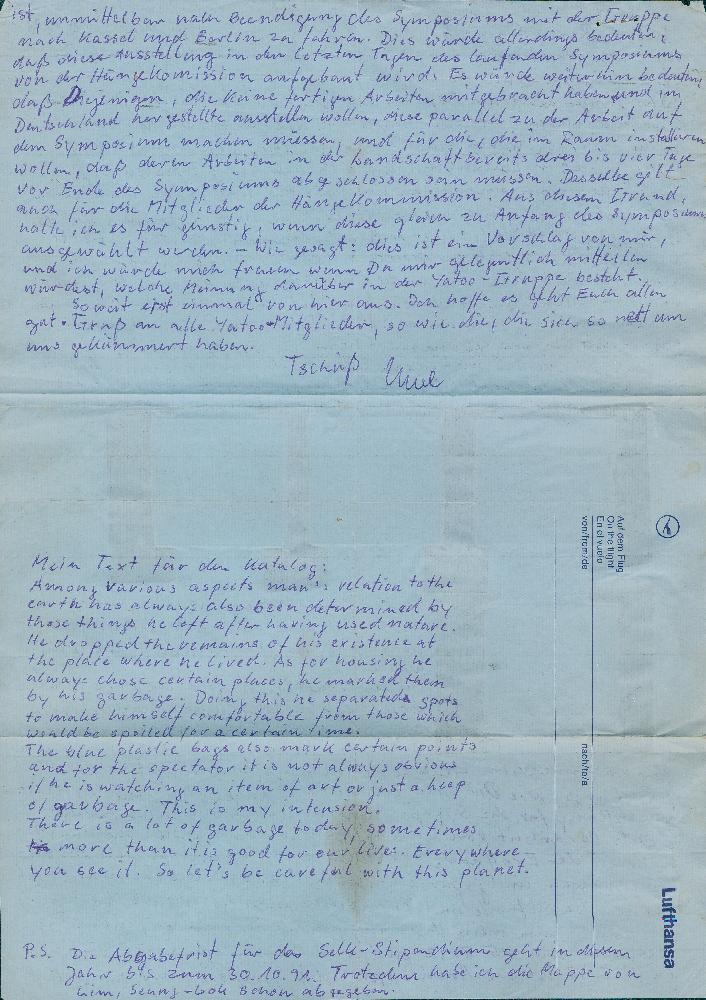 ist, unmittelbar nach Beendigung des Symposiums mit der Gruppe
nach Kassel und Berlin zu fahren. Dies würde allerdings bedeuten,
daß diese Ausstellung in den letzten Tagen des laufenden Symposiums
von der Hängekomission aufgebaut wird. Es würde weiterhin bedeuten,
daß Diejenigen, die keine fertigen Arbeiten mitgebracht haben und in
Deutschland hergestellte ausstellen wollen, diese parallel zu der Arbeit auf
dem Symposium machen müssen, und für die, die im Raum installieren
wollen, daß deren Arbeiten in der Landschaft bereits drei bis vier Tage
vor Ende des Symposiums abgeschlossen sein müssen. Dasselbe gilt
auch für die Mitglieder der Hängekommission. Aus diesem Grund,
halte ich es für günstig, wenn diese gleich zu Anfang des Symposiums
ausgewählt werden. – Wie gesagt: dies ist ein Vorschlag von mir,
und ich würde mich freuen wenn Du mir gelegentlich mitteilen
würdest, welche Meinung darüber in der Yatoo-Gruppe besteht.
Soweit erst einmal von hier aus. Ich hoffe es geht Euch allen
gut. Gruß an alle Yatoo-Mitglieder, so wie die, die sich so nett um
uns gekümmert haben.
Tschüß
Mein Text für den Katalog:
Among various aspects man's relation to the
earth has always also been determined by
those things he left after having used nature.
He dropped the remains of his existence at
the place where he lived. As for housing he
always chose certain places, he marked them
by his garbage. Doing this he separated spots
to make himself comfortable from those which
would be spoiled for a certain time.
The blue plastic bags also mark certain points
and for the spectator it is not always obvious
if he is watching an item of art or just a heep
of garbage. This is my intension.
There is a lot of garbage today, sometimes
more than it is good for our lives. Everywhere
you see it. So let's be careful with this planet.
P.S. Die Abgabefrist für das Stipendium geht in diesem
Jahr bis zum 30.10.91. Trotzdem habe ich die Mappe von
Lim, Seung-bok schon abgegeben.
Auf dem Flug
On the flight
En el vuelo
von/from/de
nach/to/a
Lufthansa